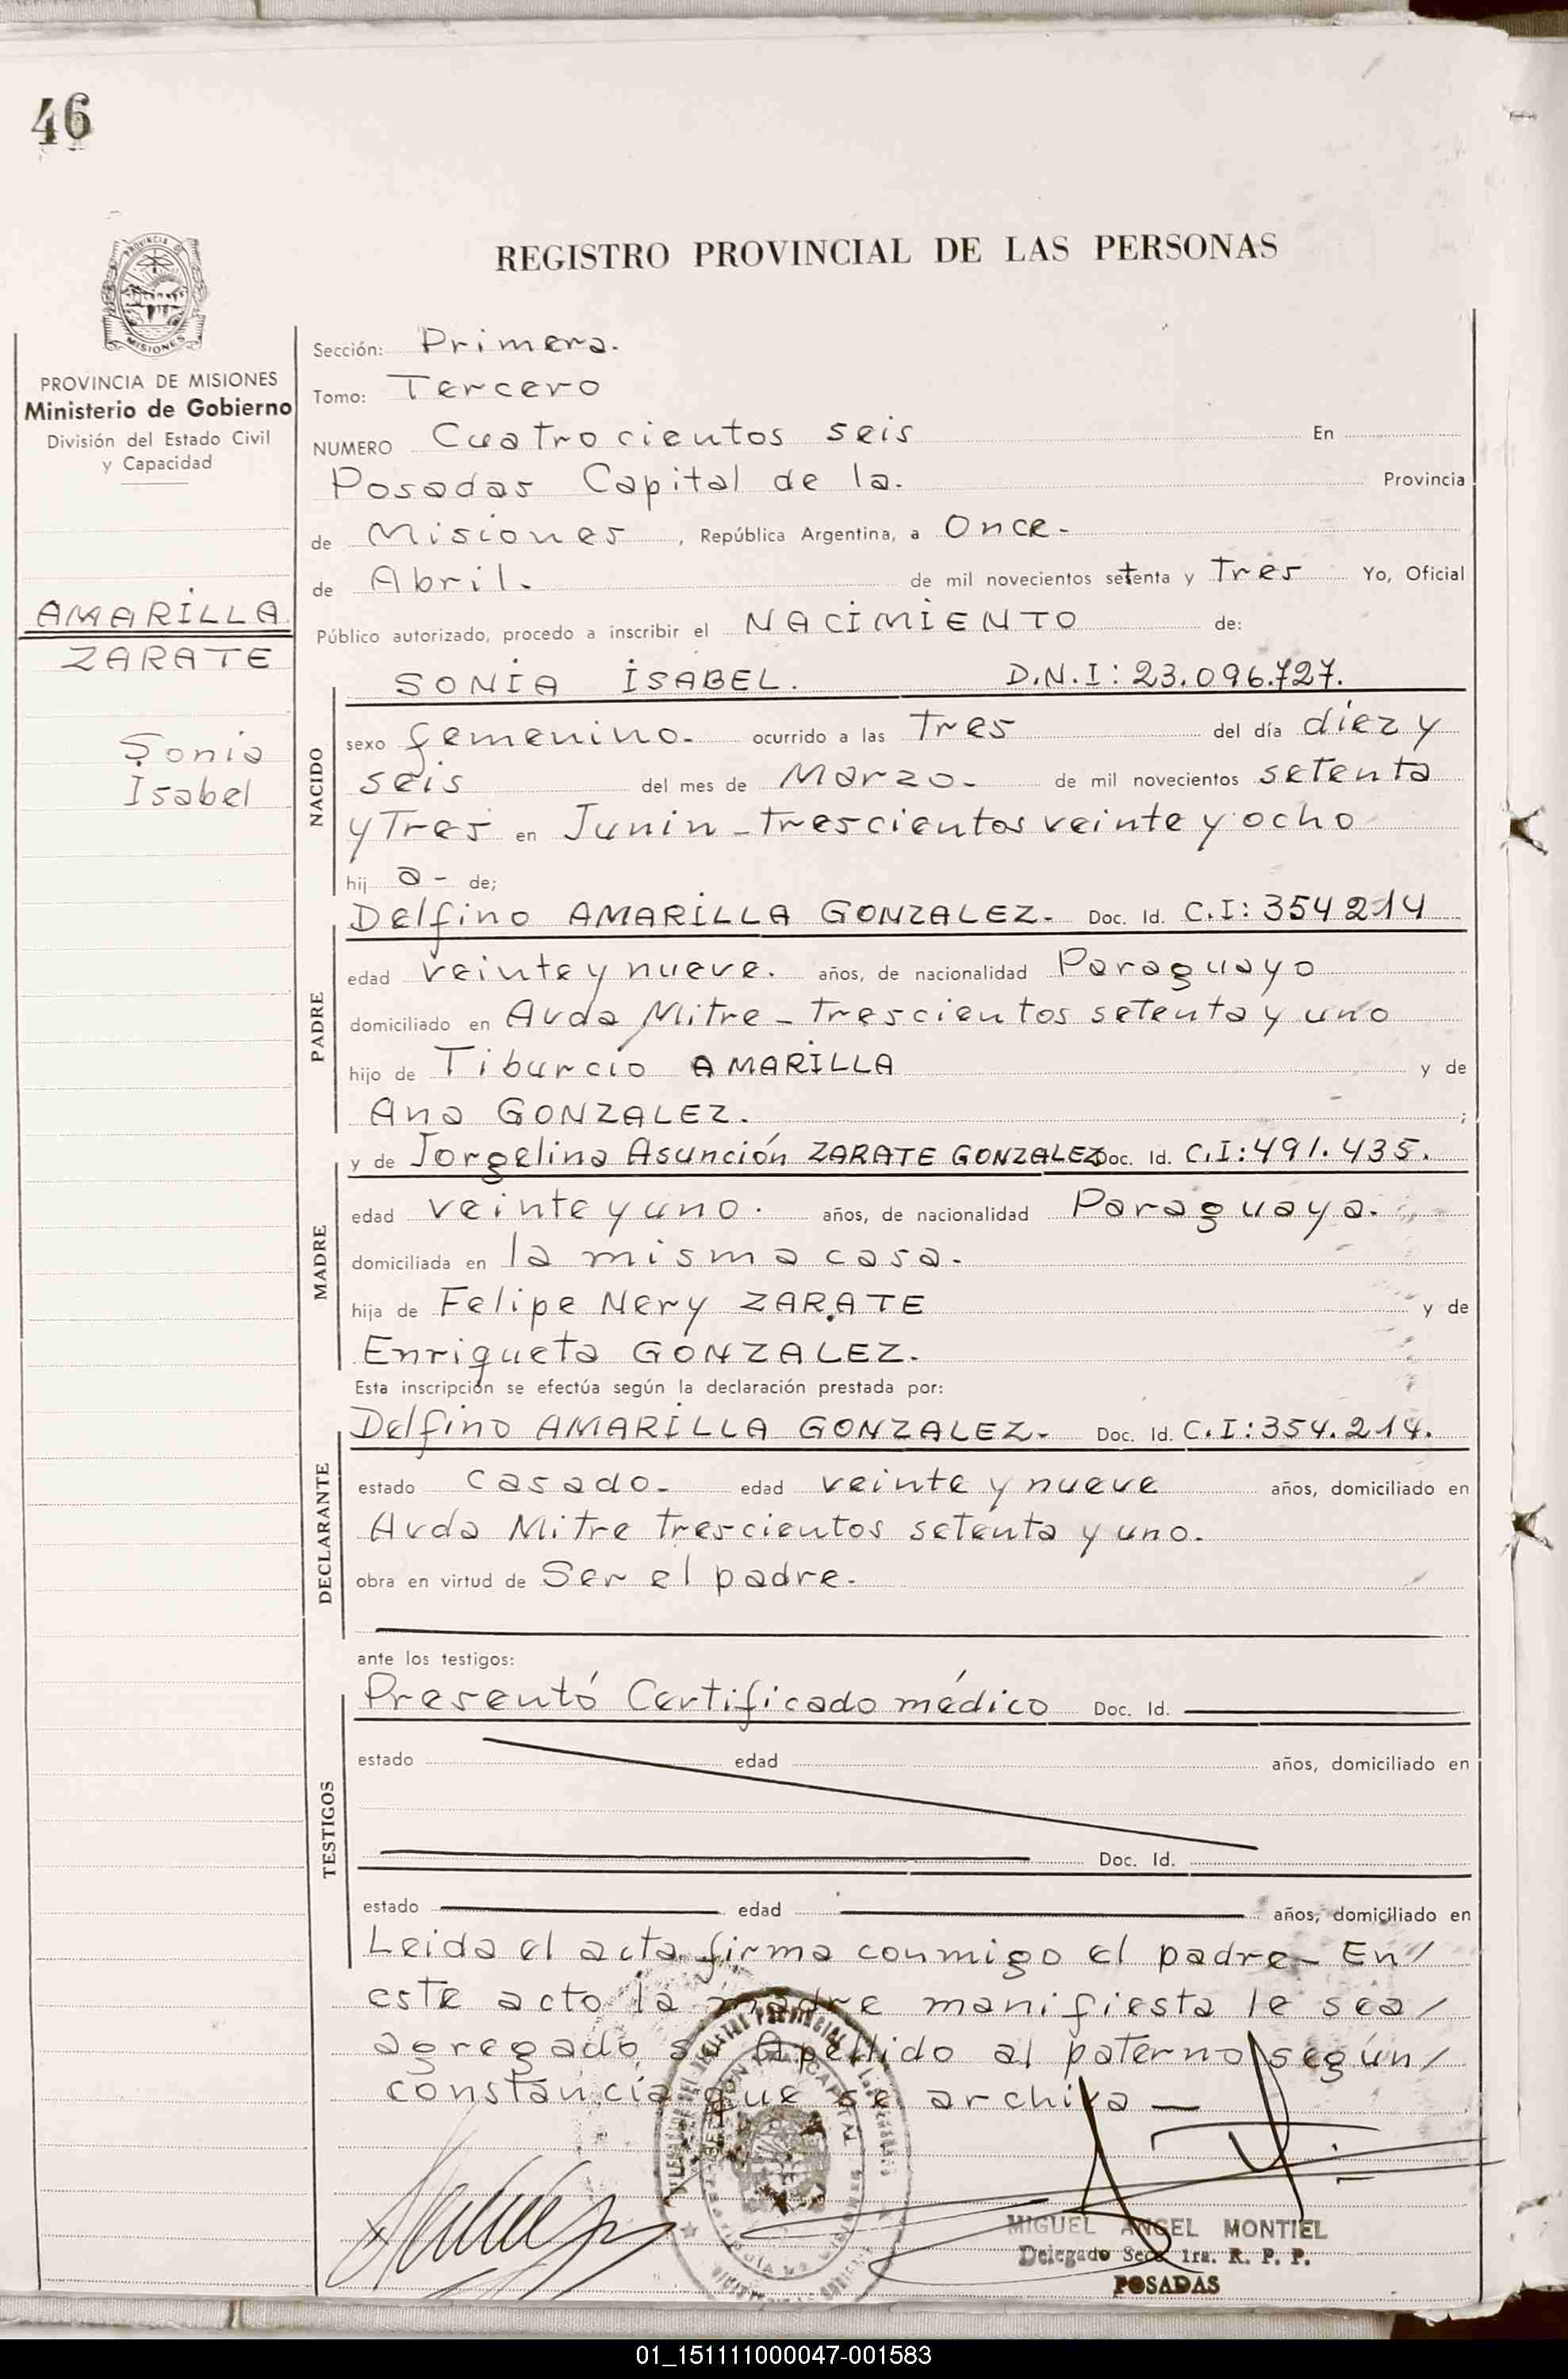 46
REGISTRO PROVINCIAL DE LAS PERSONAS
MISIONES
PROVINCIA DE MISIONES
Ministerio de Gobierno
División del Estado Civil
y Capacidad
AMARILLA
ZARATE
Sonia
Isabel
Sección: Primera.
Tomo: Tercero
NUMERO Cuatrocientos seis En
Posadas Capital de la. Provincia
de Misiones, República Argentina, a Once-
de Abril. de mil novecientos setenta y tres Yo, Oficial
Público autorizado, procedo a inscribir el NACIMIENTO de:
SONIA ISABEL. D.N.I: 23.096.727.
NACIDO
sexo femenino- ocurrido a las Tres del día diez y
seis del mes de Marzo- de mil novecientos setenta
y Tres en Junin - trescientos veinte y ocho
hij a- de;
Delfino AMARILLA GONZALEZ- Doc. Id. C.I: 354214
PADRE
edad veinte y nueve. años, de nacionalidad Paraguayo
domiciliado en Avda Mitre - trescientos setenta y uno
hijo de Tiburcio AMARILLA y de
Ana GONZALEZ. ;
y de Jorgelina Asunción ZARATE GONZALEZ Doc. Id. C.I: 491.435.
MADRE
edad veinte y uno. años, de nacionalidad Paraguaya.
domiciliada en la misma casa.
hija de Felipe Nery ZARATE y de
Enriqueta GONZALEZ.
Esta inscripción se efectúa según la declaración prestada por:
Delfino AMARILLA GONZALEZ- Doc. Id. C.I: 354.214.
DECLARANTE
estado casado- edad veinte y nueve años, domiciliado en
Avda Mitre trescientos setenta y uno.
obra en virtud de Ser el padre-
ante los testigos:
Presentó Certificado médico Doc. Id.
TESTIGOS
estado edad años, domiciliado en
Doc. Id.
estado edad años, domiciliado en
Leida el acta firma conmigo el padre- En/
este acto la madre manifiesta le sea/
agregado su Apellido al paterno según/
constancia que se archiva —
MIGUEL ANGEL MONTIEL
Delegado Secc 1ra. R. P. P.
POSADAS
01_151111000047-001583